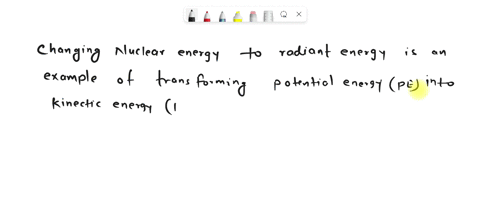 Changing Nuclear energy to radiant energy is an
example of transforming potential energy (PE) into
kinectic energy (